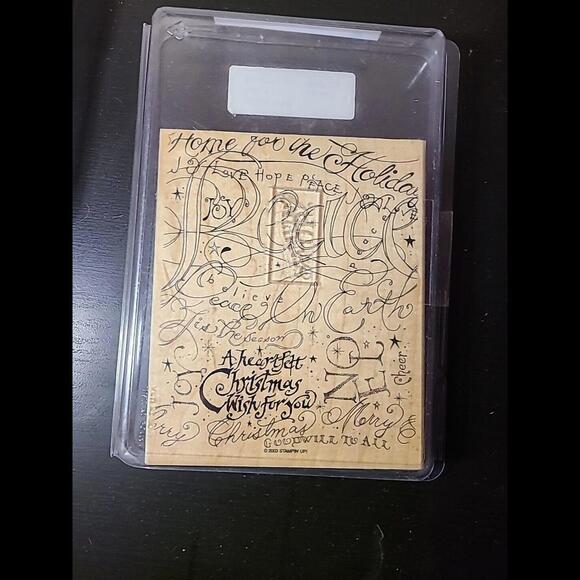 Home for the Holidays
JOY LOVE HOPE PEACE
JOY
Peace
believe
Peace On Earth
'Tis the season
NOEL
Cheer
A heartfelt
Christmas
Wish for you
JOY
Merry Christmas Merry
GOODWILL TO ALL
© 2003 STAMPIN' UP!